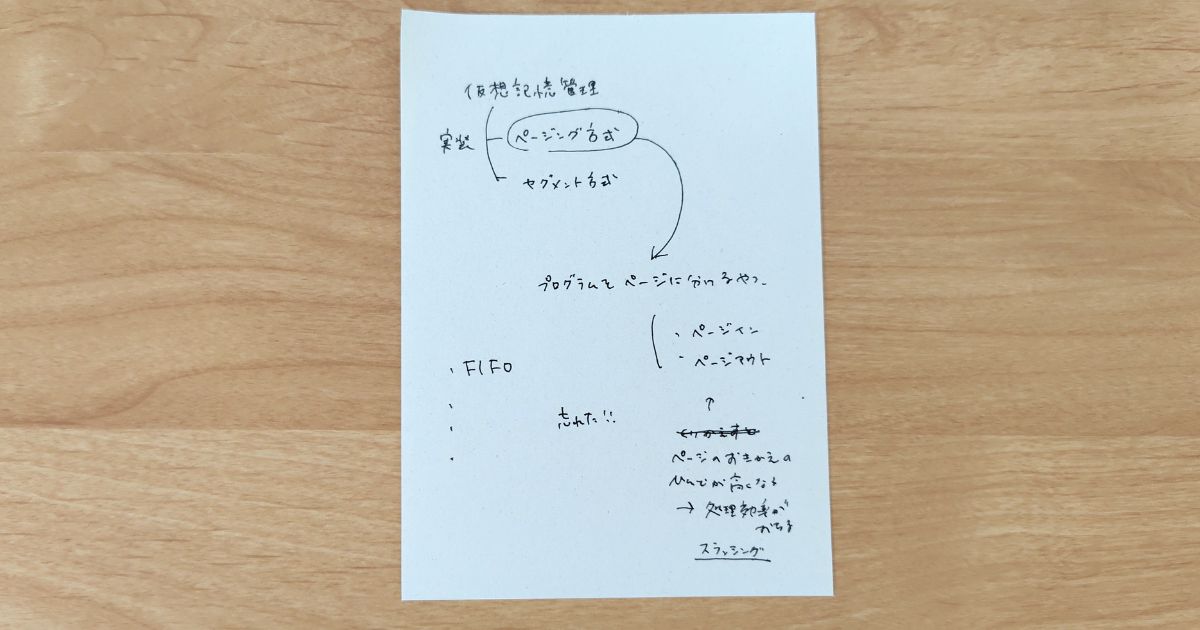 仮想記憶管理
実装
ページング方式
セグメント方式
プログラムをページに分けるやつ。
・ページイン
・ページアウト
・FIFO
・
・
・
忘れた!!
↑
くりかえすと
ページのおきかえの
ひんどが高くなる
→ 処理効率が
おちる
スラッシング